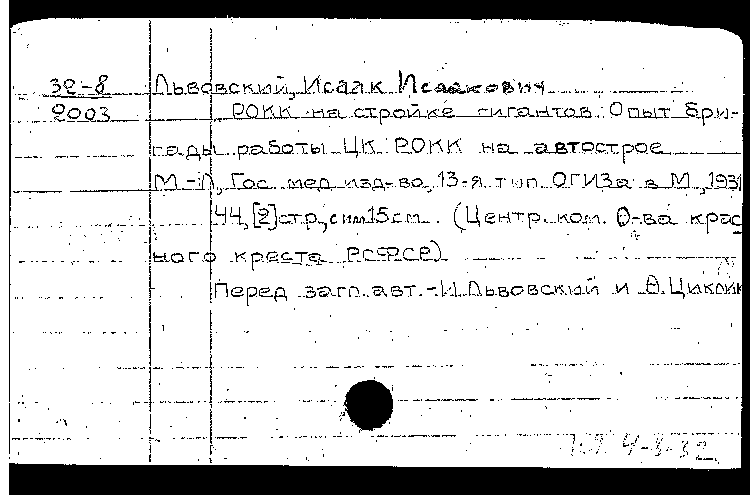 32-8 Львовский, Исаак Исаакович
2003 РОКК на стройке гигантов. Опыт бри-
гады работы ЦК РОКК на автострое
М.-Л, Гос. мед. изд-во, 13-я тип. ОГИЗа в М., 1931
44, [2] стр., 15 см. (Центр. ком. О-ва крас
ного креста РСФСР)
Перед загл. авт. - И. Львовский и Циклик
4-3-32